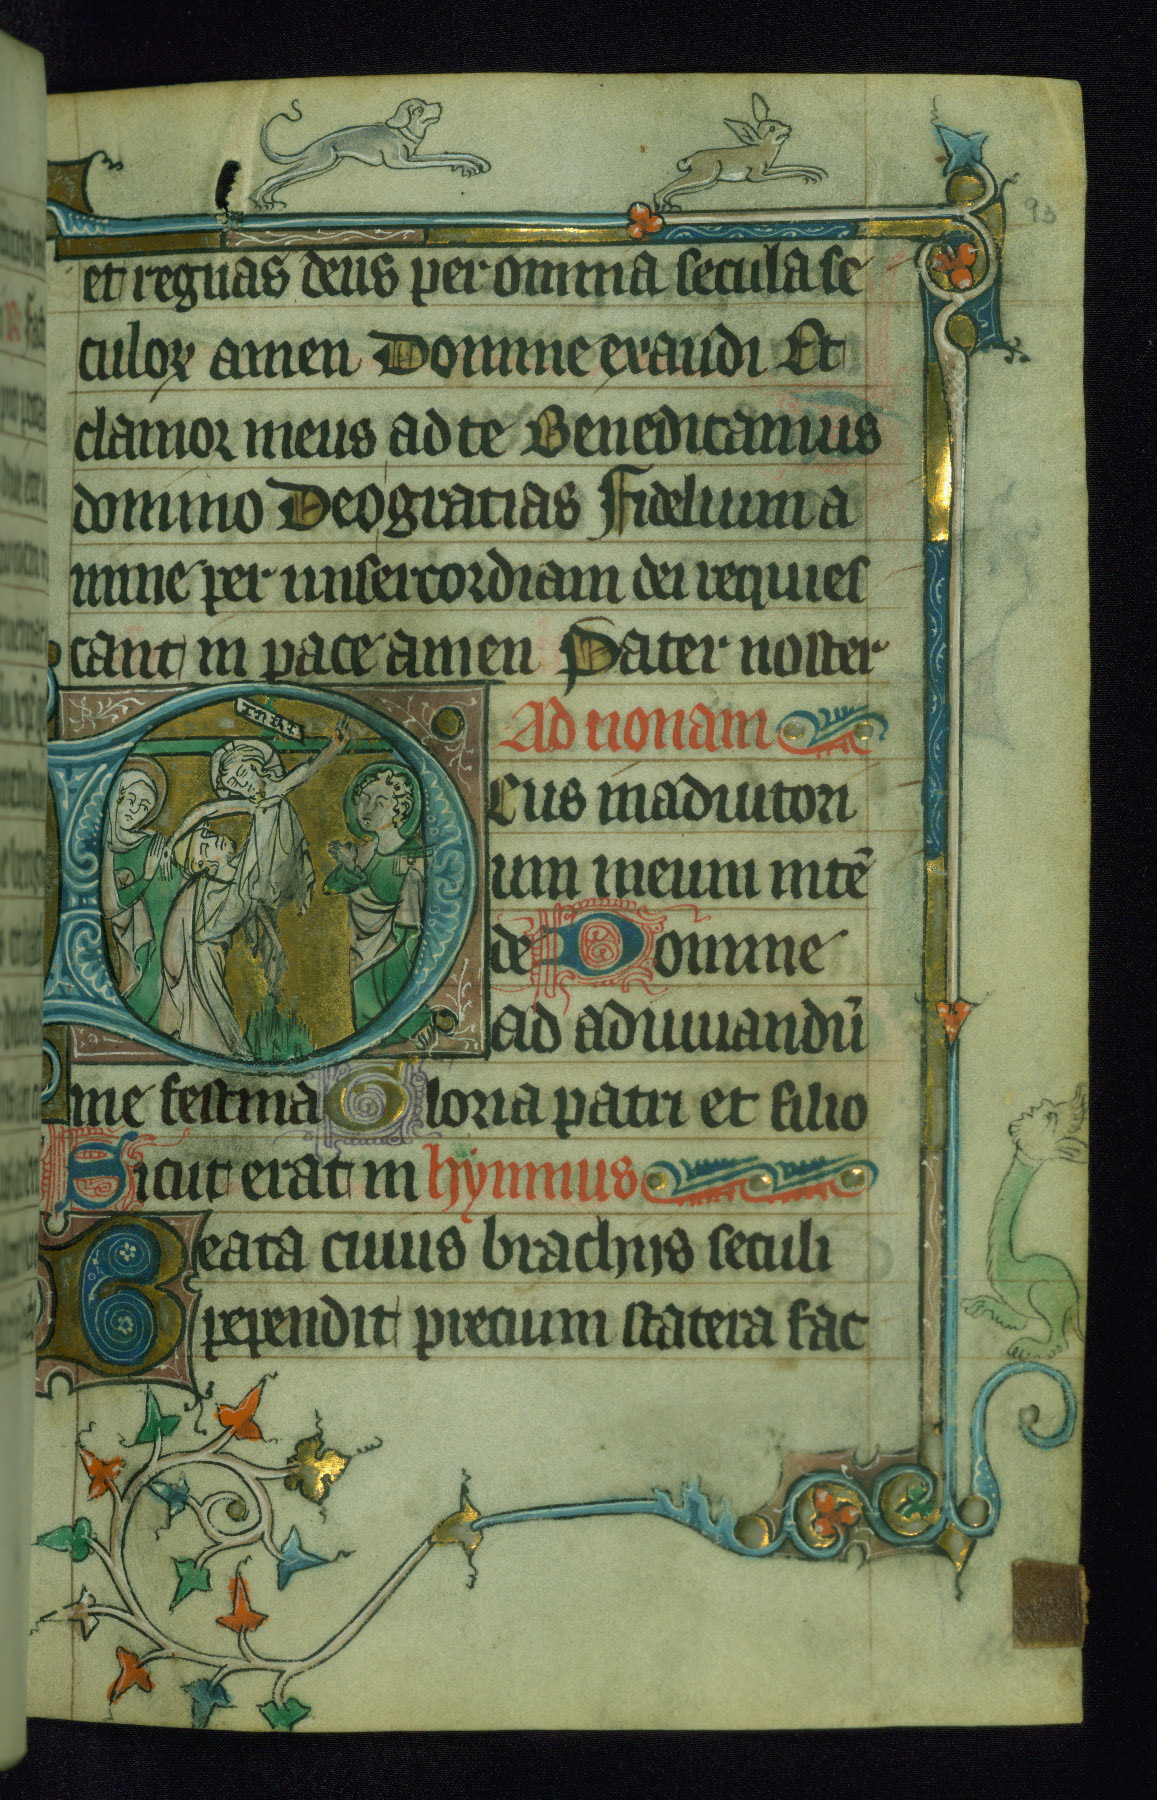 93
et regnas deus per omnia secula se
culoꝝ amen Domine exaudi Et
clamor meus ad te Benedicamus
domino Deo gratias Fidelium a
nime per misercordiam dei requies
cant in pace amen Pater noster
inri
Ad nonam
Deus in adiutori
um meum intē
de Domine
ad adiuuandū
me festina Gloria patri et filio
Sicut erat in hymnus
Beata cuius brachijs seculi
pependit precium statera fac